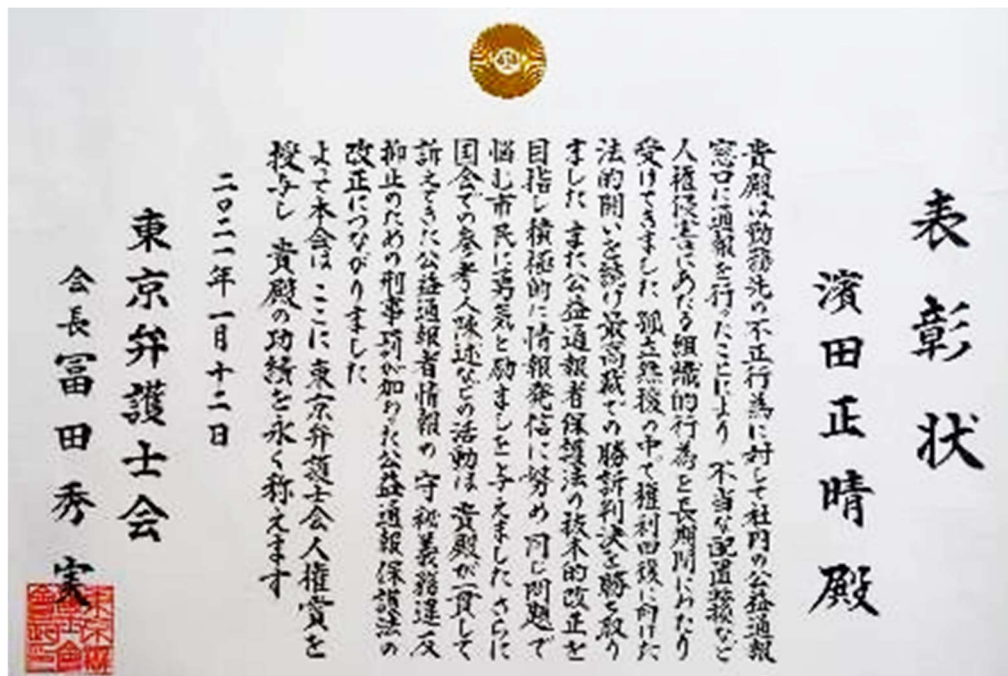 表彰状
濱田正晴殿
貴殿は勤務先の不正行為に対して社内の公益通報
窓口に通報を行ったことにより 不当な配置転換など
人権侵害にあたる組織的行為を長期間にわたり
受けてきました 孤立無援の中で権利回復に向けた
法的闘いを続け最高裁での勝訴判決を勝ち取り
ました また公益通報者保護法の抜本的改正を
目指し積極的に情報発信に努め 同じ問題で
悩む市民に勇気と励ましを与えました さらに
国会での参考人陳述などの活動は 貴殿が一貫して
訴えてきた公益通報者情報の守秘義務違反
抑止のための刑事罰が加わった公益通報保護法の
改正につながりました
よって本会は ここに 東京弁護士会人権賞を
授与し 貴殿の功績を永く称えます
二〇二一年一月十二日
東京弁護士会
会長 冨田秀実